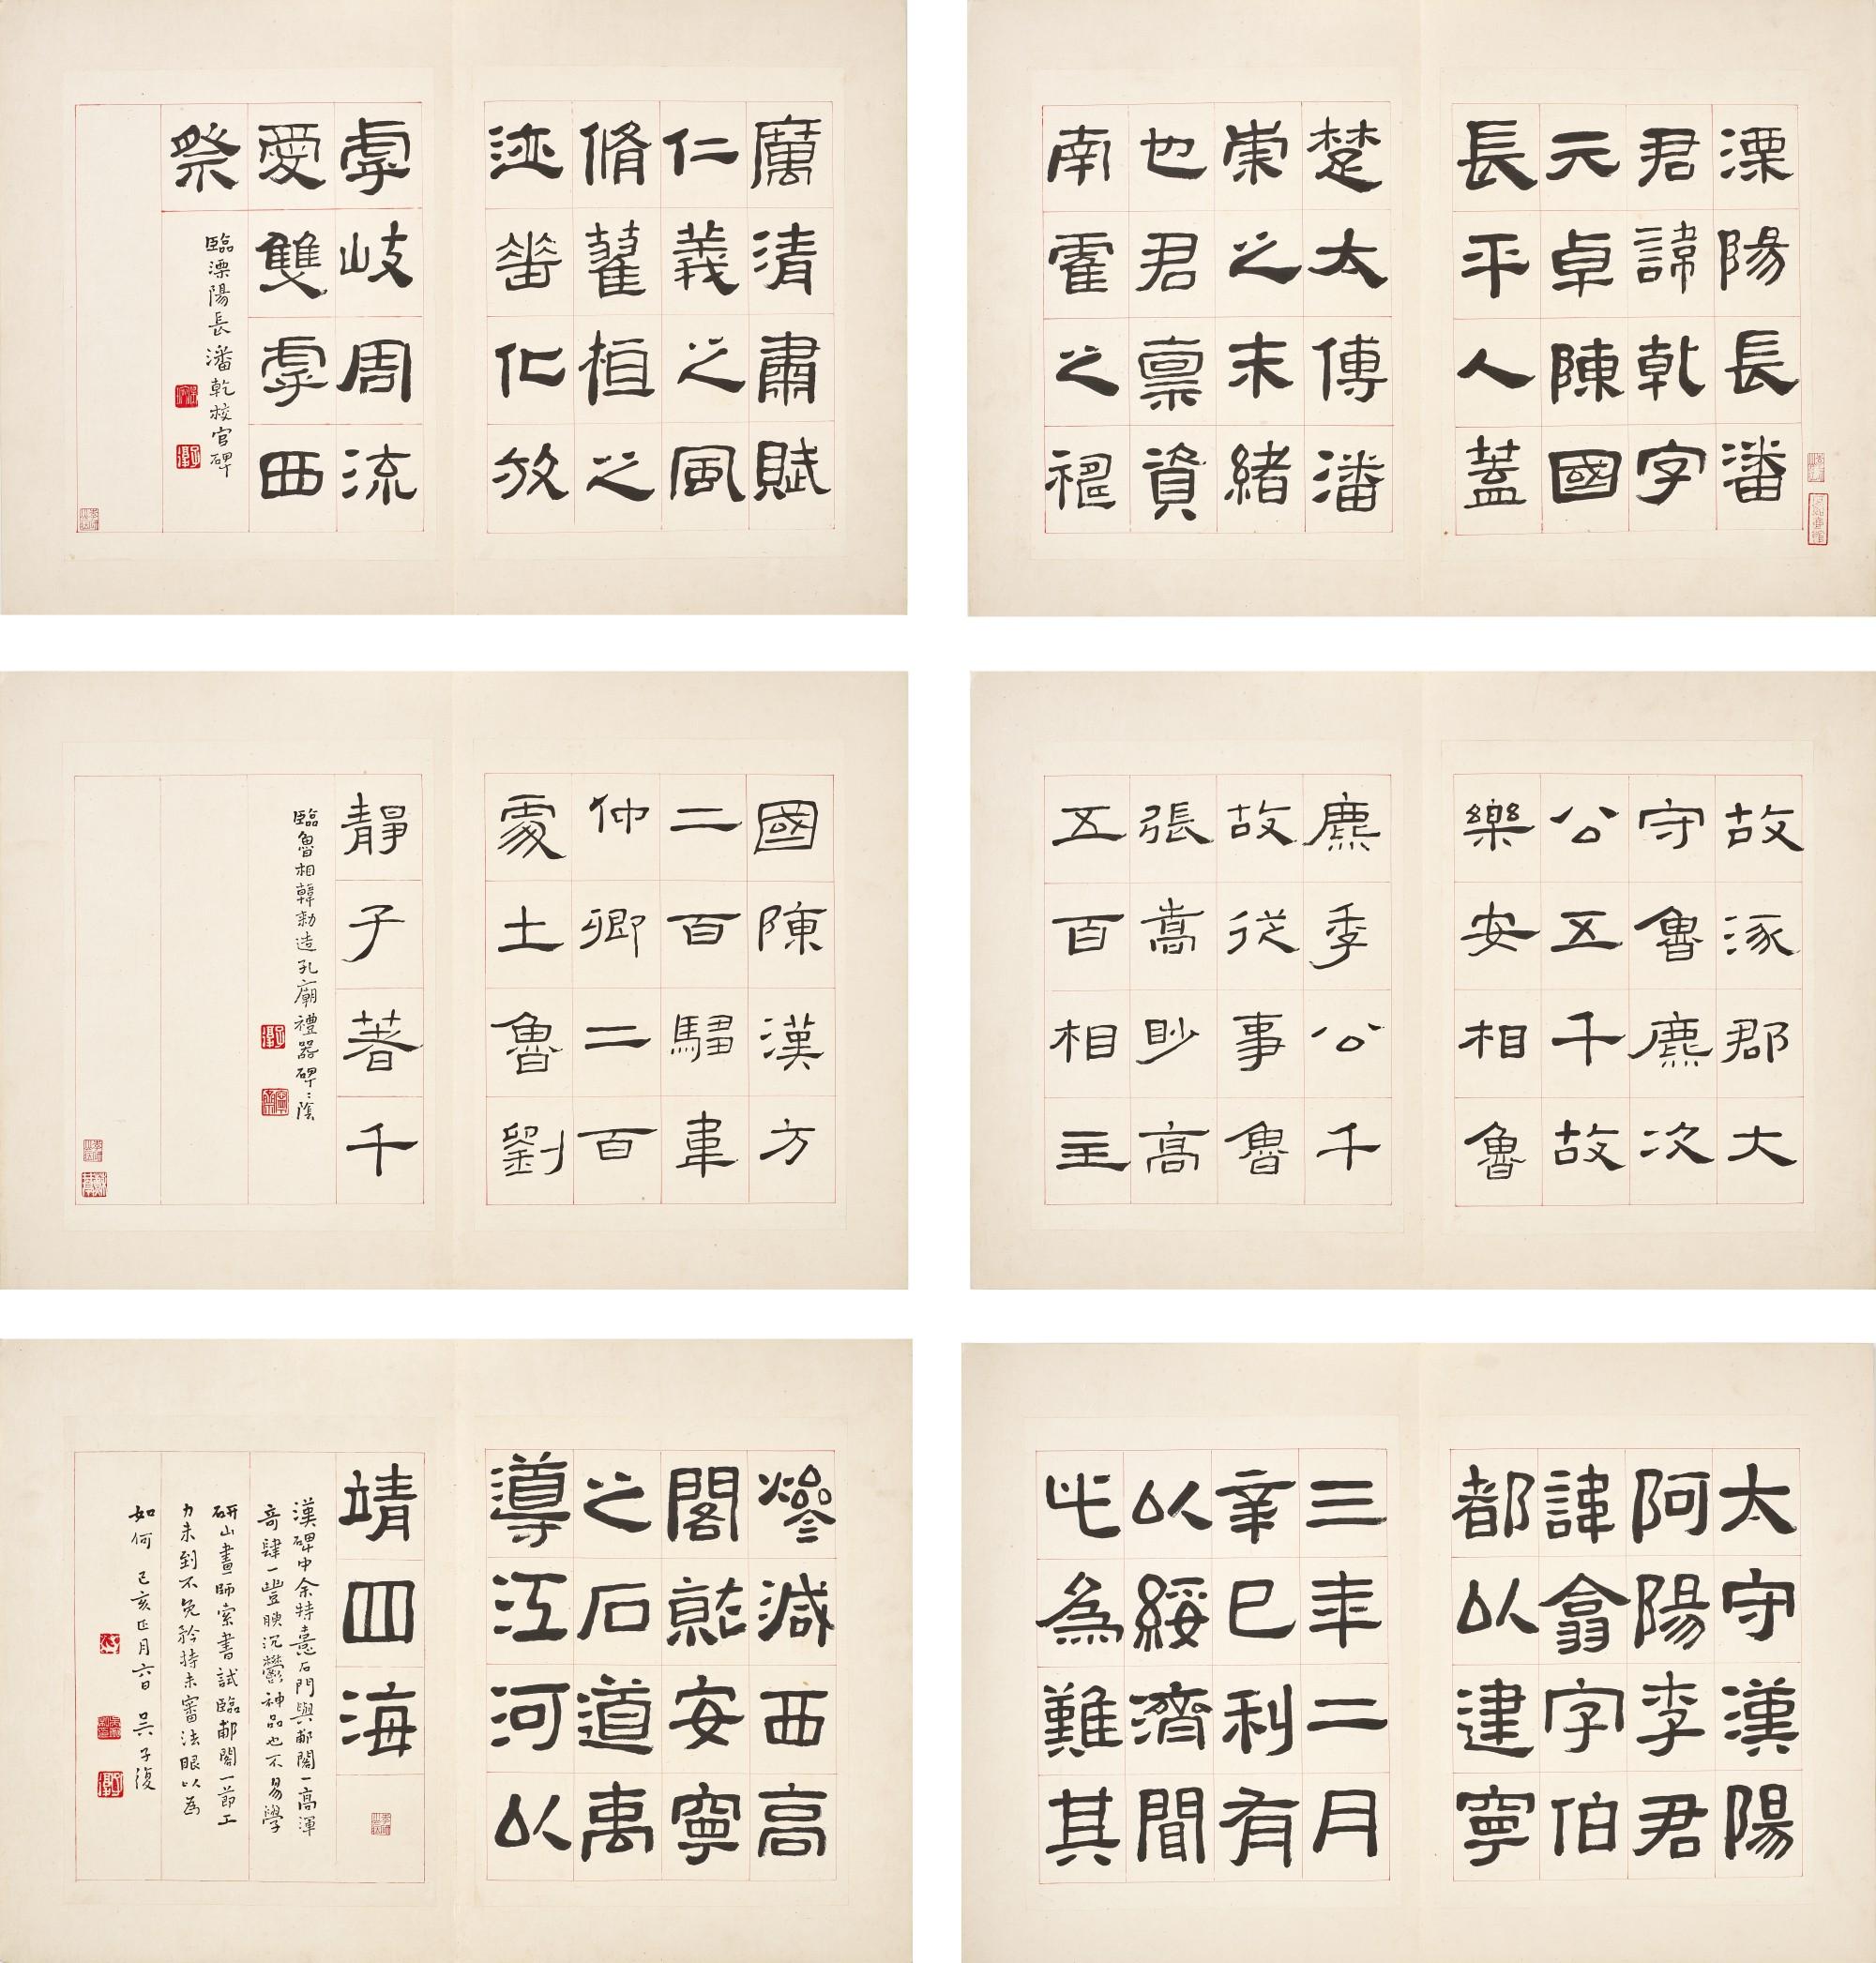 溧陽長潘
君諱乾字
元卓陳國
長平人蓋
楚太傅潘
崇之末緒
也君稟資
南霍之神
厲清肅賦
仁義之風
脩䕥桓之
迹蕐化放
虖岐周流
愛雙虖西
祭
臨溧陽長潘乾校官碑
故涿郡大
守魯麃次
公五千故
樂安相魯
麃季公千
故從事魯
張嵩眇高
五百相主
國陳漢方
二百騶韋
仲卿二百
處土魯劉
靜子著千
臨魯相韓勑造孔廟禮器碑〻陰
太守漢陽
阿陽李君
諱翕字伯
都以建寧
三年二月
辛巳到有
以綏濟閒
此為難其
燮減西高
閣就安寧
之石道禹
導江河以
靖四海
漢碑中余特憙石門與郙閣一高渾
奇肆一豐腴沉鬱神品也不易學
研山畫師索書試臨郙閣一節工
力未到不免矜持未審法眼以為
如何 己亥正月六日 吳子復